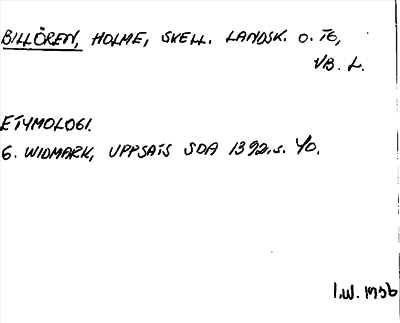 BILLÖREN, HOLME, SKELL. LANDSK. O. TG,
VB. L.
ETYMOLOGI.
G. WIDMARK, UPPSATS SOA 1392, s. 40.
I.W. 1956